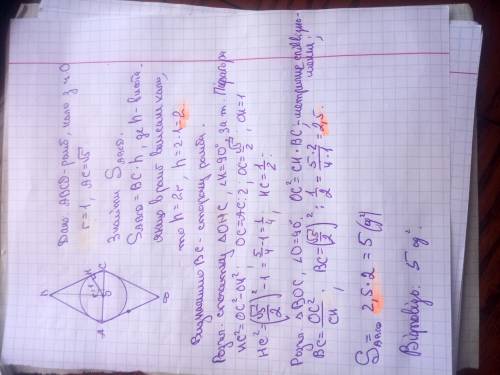 Дано ABCD-ромб, коло з ц. О
r=1, AC=√5
Знайти S ABCD.
S ABCD = BC · h, де h-висота.
якщо в ромб вписане коло,
то h=2r, h=2·1=2.
Визначимо BC - сторону ромба.
Розгл. спочатку △OHC, ∠H=90°. За т. Піфагора
HC²=OC²-OH². OC=AC:2, OC=√5/2, OH=1
HC²=(√5/2)²-1=5/4-1=1/4, HC=1/2.
Розгл. △BOC, ∠O=90°. OC²=CH·BC-метричне співвідно-
шення,
BC=OC²/CH, BC=(√5/2)²:1/2=5·2/4·1=2,5.
S ABCD = 2,5·2=5(од²)
Відповідь: 5 од².
B
A
C
D
O
H
r=1